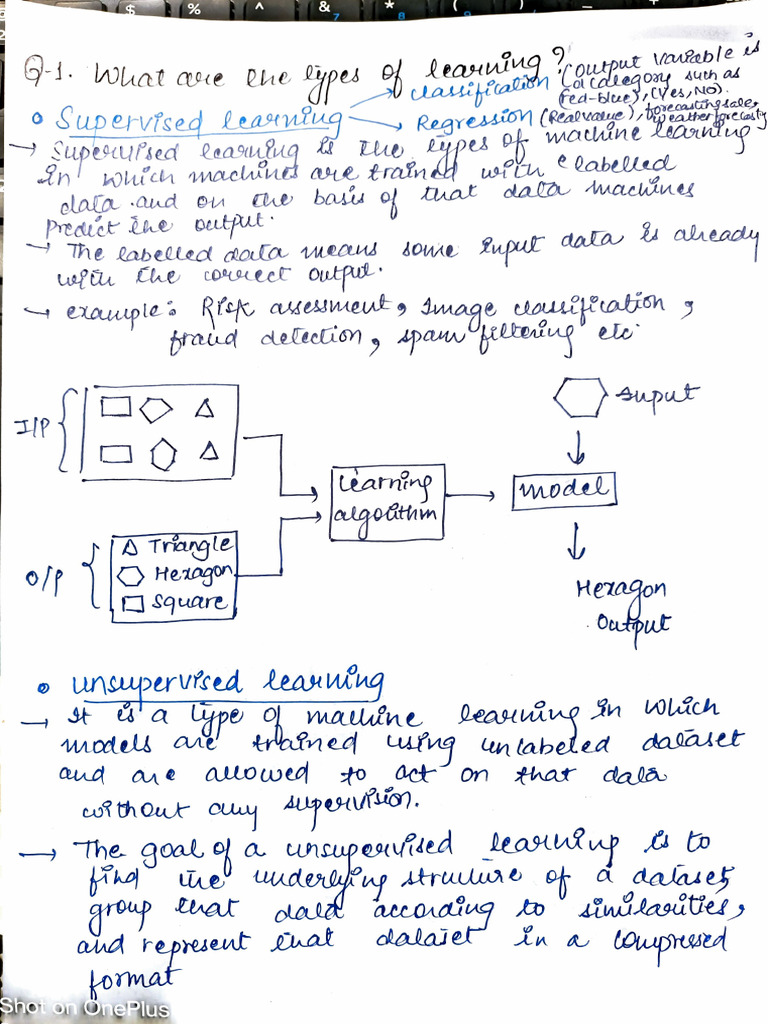 $ % ^ & * ( )
7 8 9
Q-1. What are the types of learning?
Classification (output variable is
a category such as
red-blue), (Yes, NO).
• Supervised learning
Regression (Real value), forecasting sales,
weather forecasting
→ Supervised learning is the types of machine learning
in which machines are trained with labelled
data and on the basis of that data machines
predict the output.
→ The labelled data means some input data is already
with the correct output.
→ example: Risk assessment, Image classification,
fraud detection, spam filtering etc.
I/P
Input
Learning
algorithm
model
O/P
Triangle
Hexagon
Square
Hexagon
Output
• Unsupervised learning
→ It is a type of machine learning in which
models are trained using unlabeled dataset
and are allowed to act on that data
without any supervision.
→ The goal of a unsupervised learning is to
find the underlying structure of a dataset,
group that data according to similarities,
and represent that dataset in a compressed
format
Shot on OnePlus